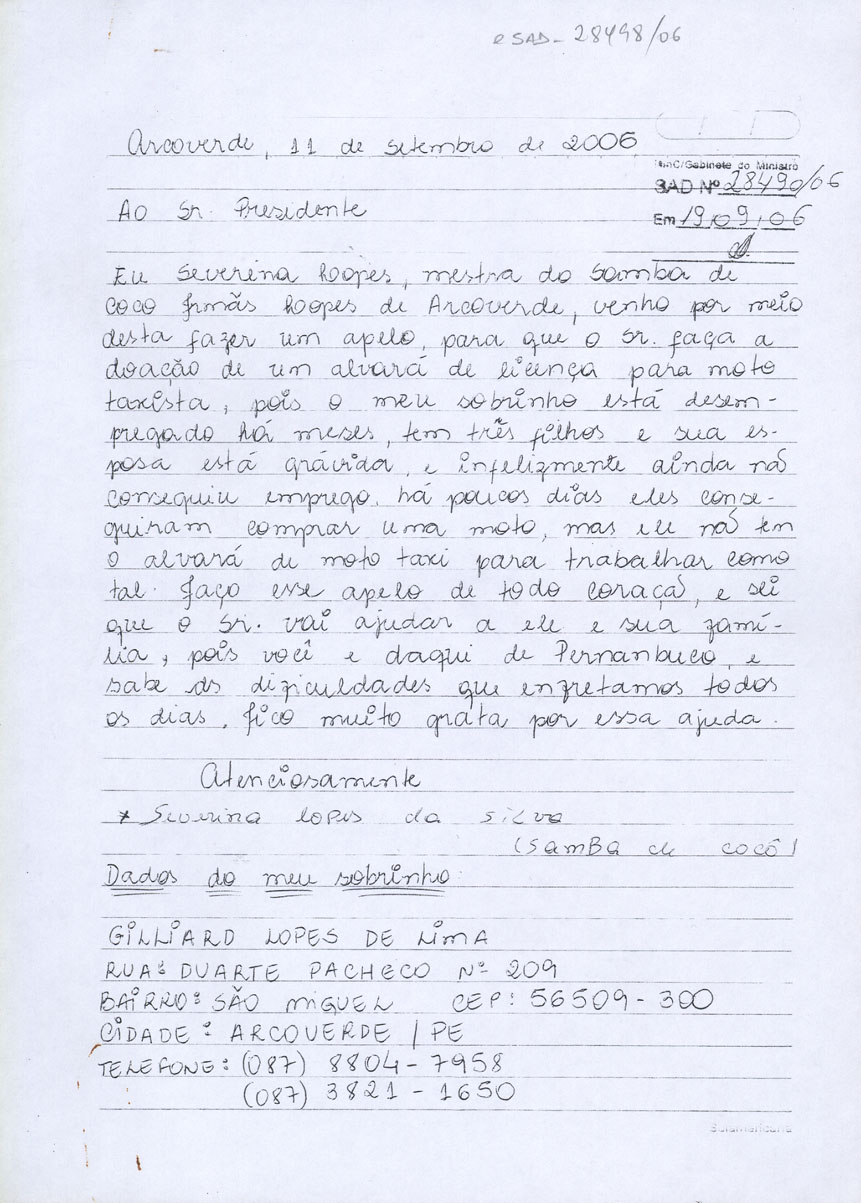 eSAD - 28498/06
Arcoverde, 11 de setembro de 2006
MinC/Gabinete do Ministro
SAD Nº 28490/06
Em 19,09,06
Ao Sr. Presidente
Eu Severina Loopes, mestra do Samba de
coco Irmãs Loopes de Arcoverde, venho por meio
desta fazer um apelo, para que o Sr. faça a
doação de um alvará de licença para moto
taxista, pois o meu sobrinho está desem-
pregado há meses, tem três filhos e sua es-
posa está grávida, e infelizmente ainda nã
conseguiu emprego. há poucos dias eles conse-
guiram comprar uma moto, mas ele nã tem
o alvará de moto taxi para trabalhar como
tal. faço esse apelo de todo coraçã, e sei
que o Sr. vai ajudar a ele e sua famí-
lia, pois você e daqui de Pernanbuco, e
sabe as dificuldades que enfretamos todos
os dias. fico muito grata por essa ajuda.
Atenciosamente
* Severina Lopes da Silva
(Samba de cocô)
Dados do meu sobrinho:
GILLIARD LOPES DE LIMA
RUA: DUARTE PACHECO Nº 209
BAIRRO: SÃO MIGUEL CEP: 56509-300
CIDADE: ARCOVERDE / PE
TELEFONE: (087) 8804-7958
(087) 3821-1650
Sulamericana